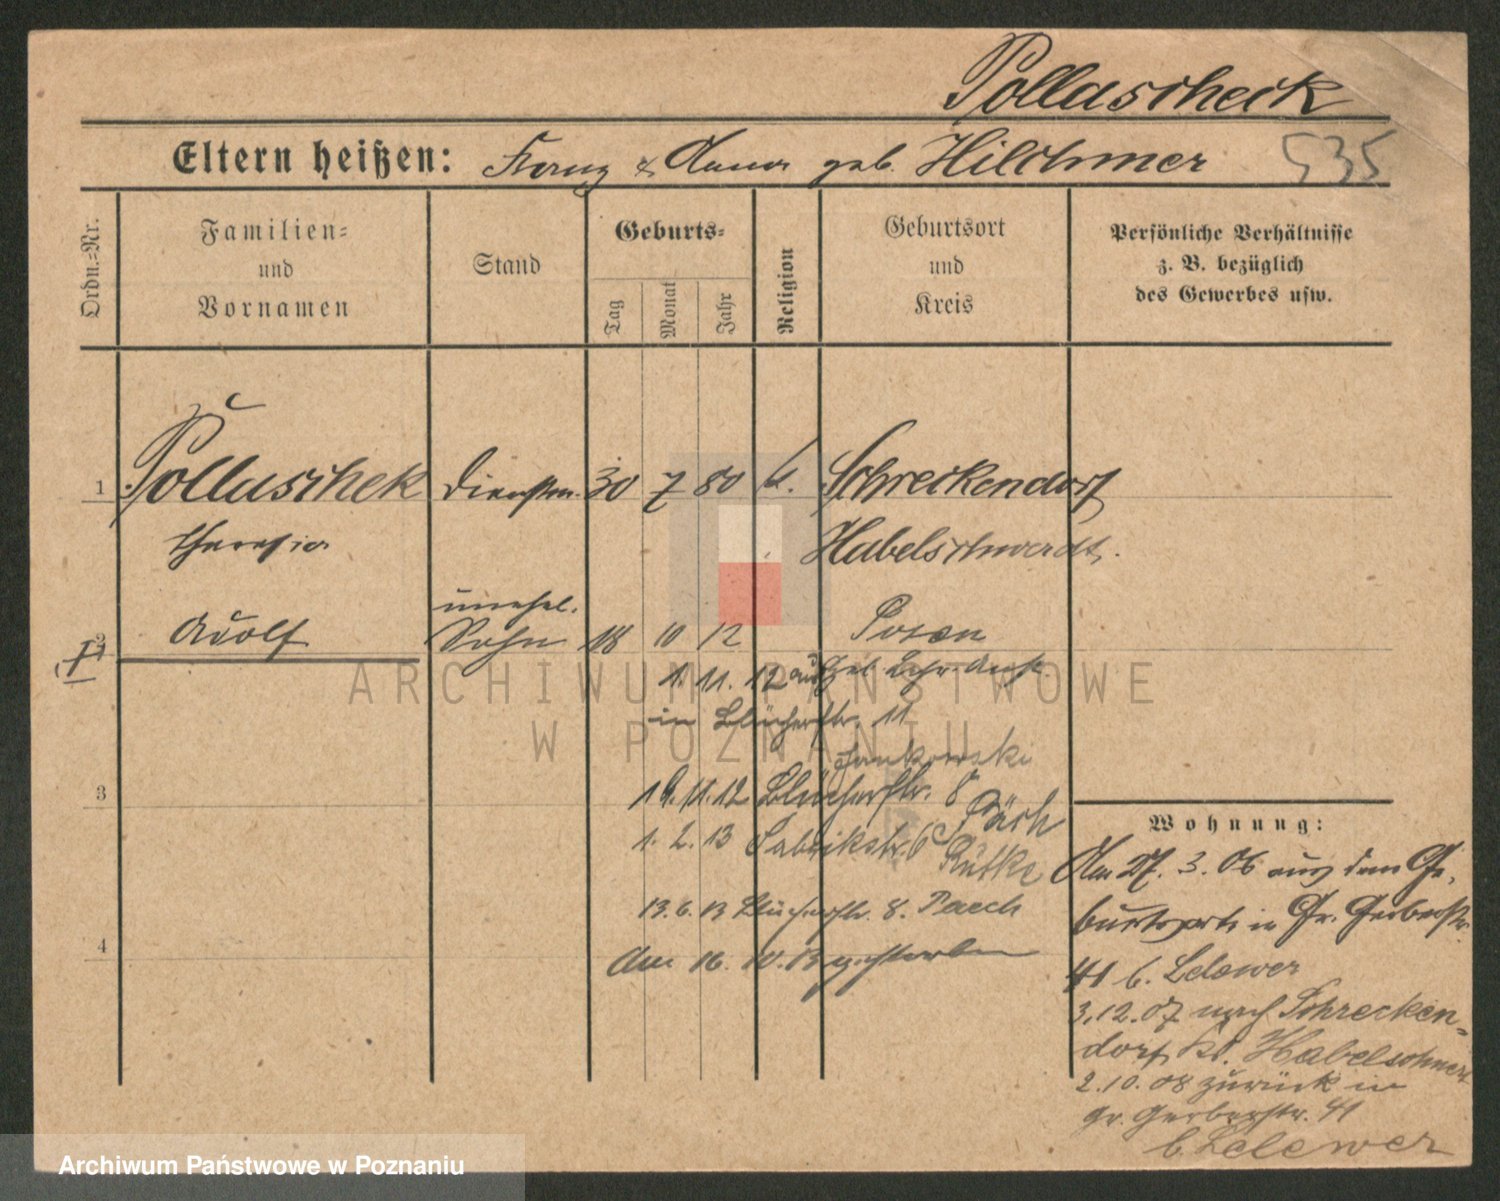 Pollascheck
Eltern heißen: Franz & Anna geb. Hilchmer
535
Ordn.=Nr.
Familien=
und
Vornamen
Stand
Geburts=
Tag
Monat
Jahr
Religion
Geburtsort
und
Kreis
Persönliche Verhältnisse
z. B. bezüglich
des Gewerbes usw.
1 Pollaschek Dienstm. 30 7 80 k. Schreckendorf
Theresia Habelschwerdt.
unehel.
2 Adolf Sohn 18 10 12 Posen
1. 11. 12
in Blücherstr. 11
Jankowski
19. 11. 12 Blücherstr. 8
Päch
1. 2. 13 Fabrikstr. 6
Rutke
13. 6. 13 Blücherstr. 8. Paech
Am 16. 10. 13 gestorben
3
4
Wohnung:
Am 27. 3. 06 aus dem Ge,
burtsorte in Gr. Gerberstr.
41 b. Lelewer
3.12.07 nach Schrecken=
dorf, Kr. Habelschwert
2.10.08 zurück in
Gr. Gerberstr. 41
b. Lelewer
ARCHIWUM PAŃSTWOWE
W POZNANIU
Archiwum Państwowe w Poznaniu